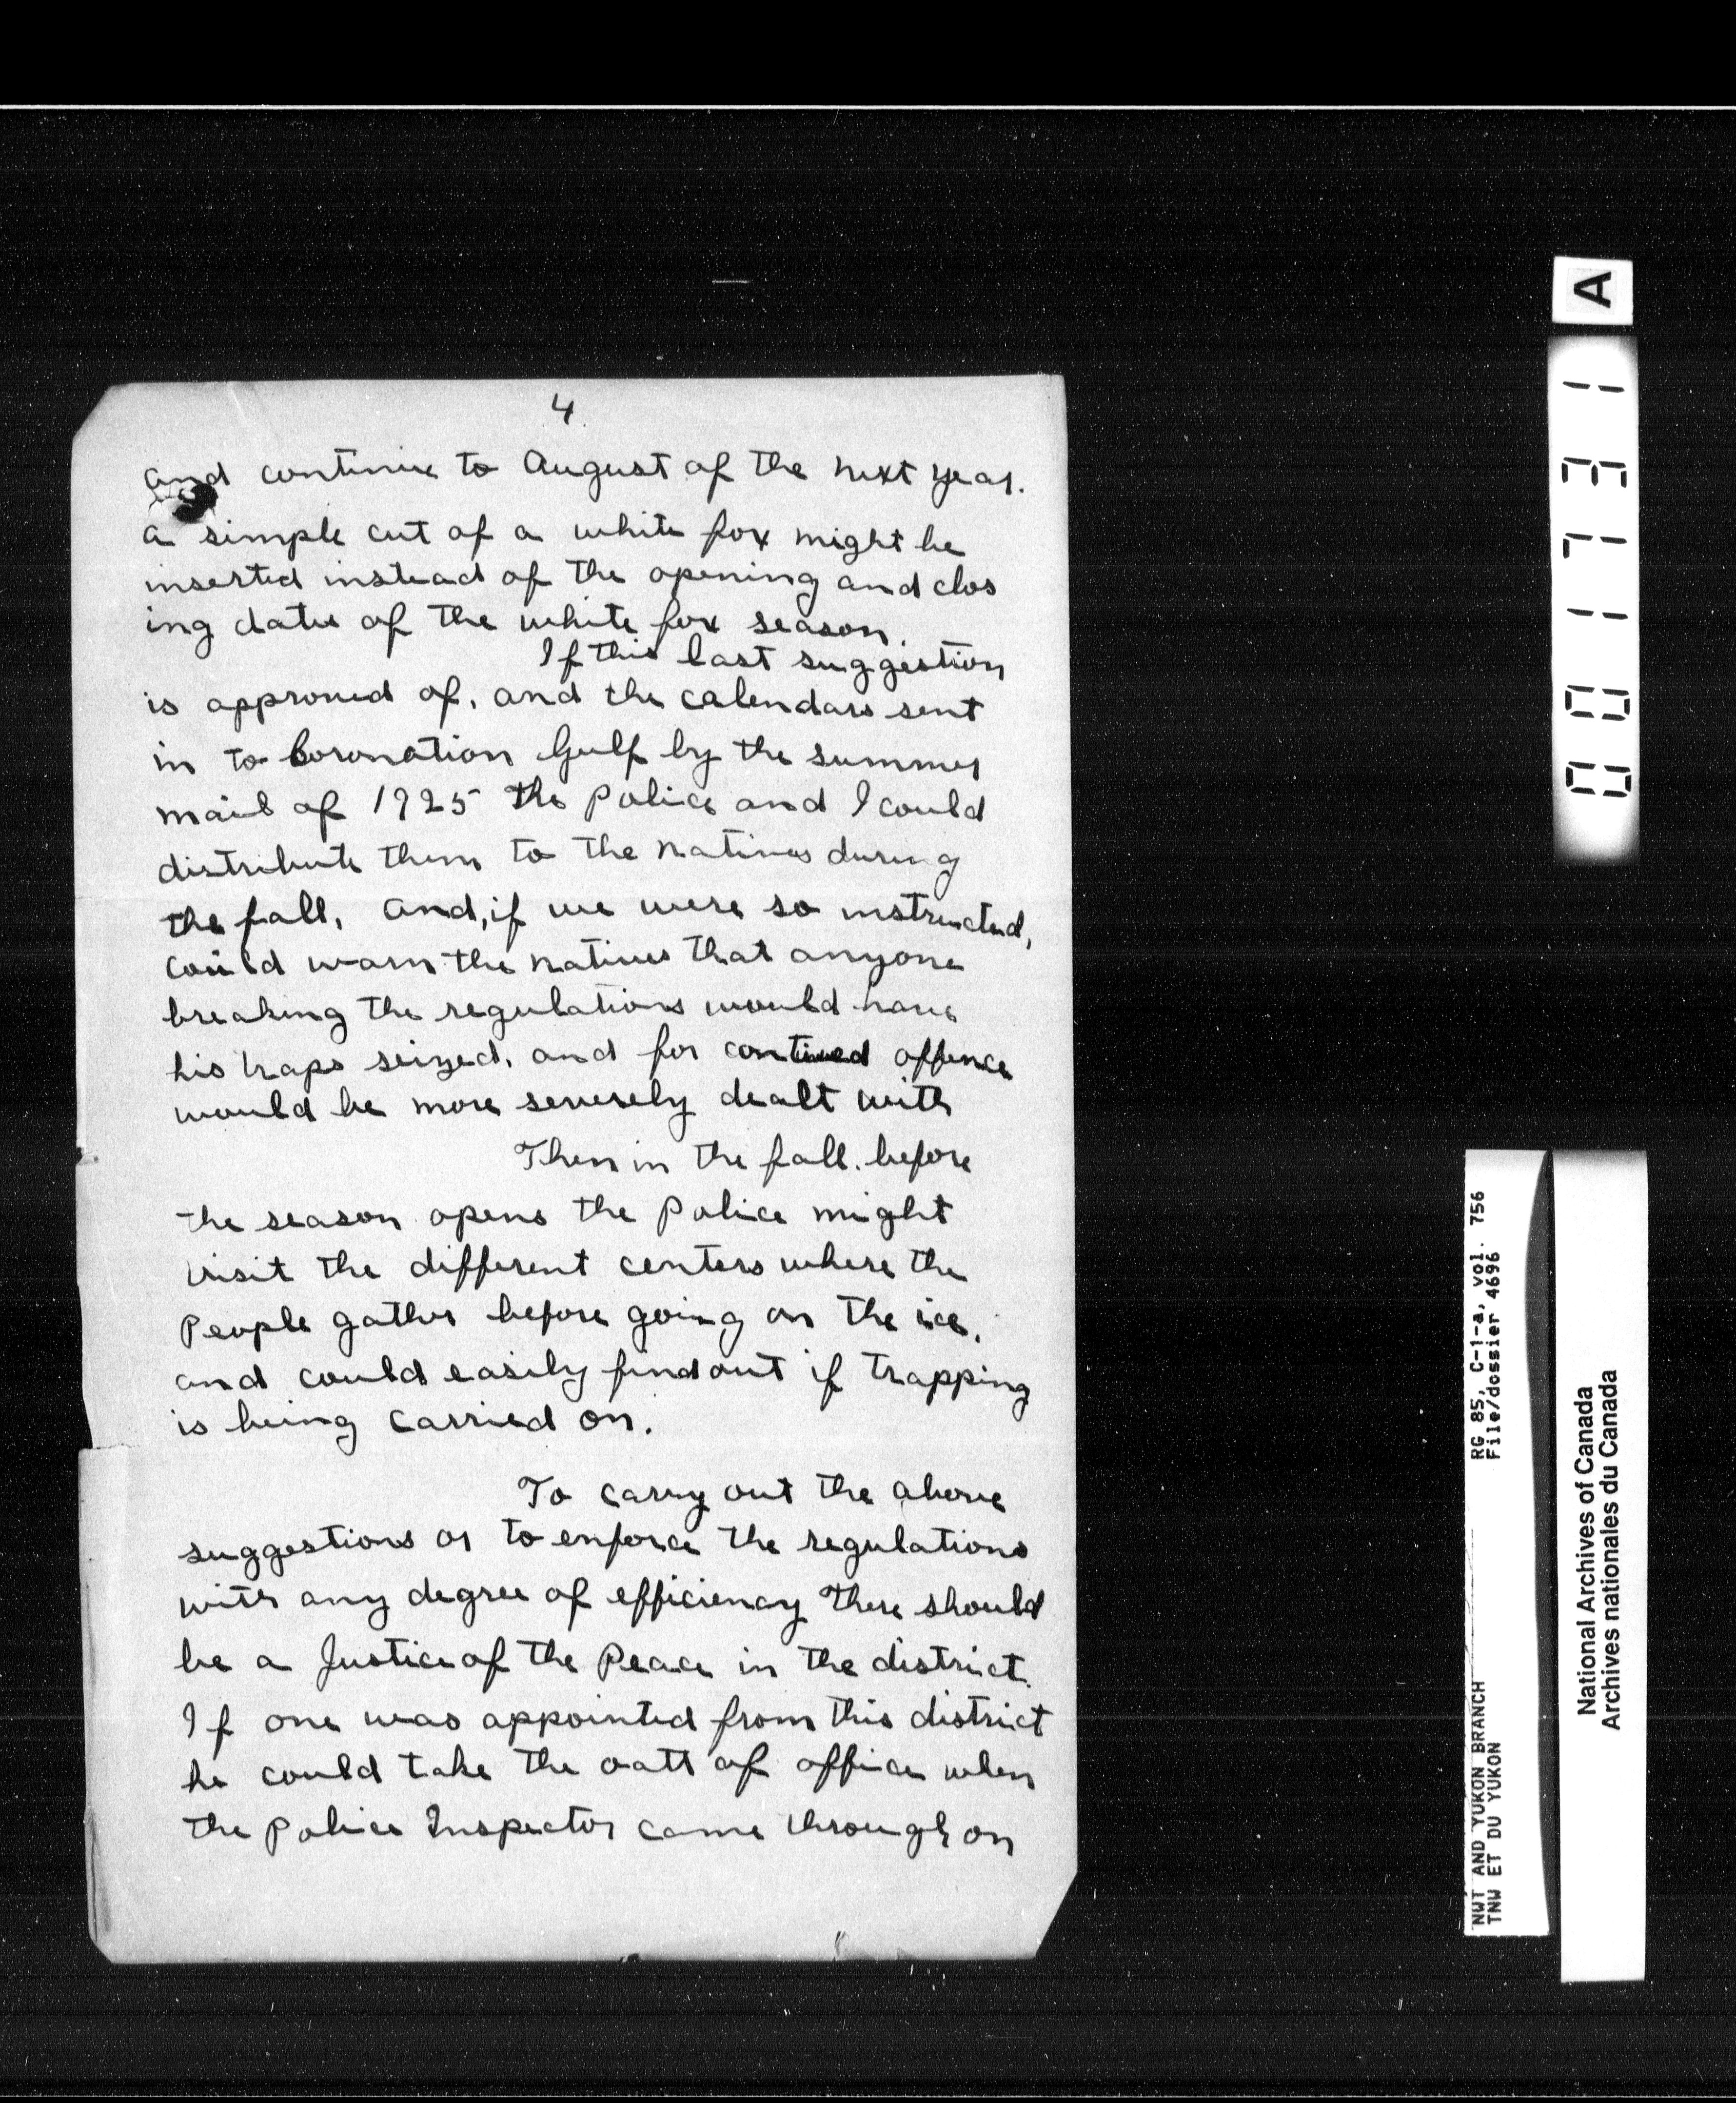 4
and continue to August of the next year.
a simple cut of a white fox might be
inserted instead of the opening and clos
ing dates of the white fox season.
If this last suggestion
is approved of, and the calendars sent
in to Coronation Gulf by the summer
mail of 1925 the Police and I could
distribute them to the natives during
the fall, and, if we were so instructed,
could warn the natives that anyone
breaking the regulations would have
his traps seized, and for contined offence
would be more severely dealt with
Then in the fall, before
the season opens the Police might
visit the different centers where the
People gather before going on the ice,
and could easily find out if trapping
is being carried on.
To carry out the above
suggestions or to enforce the regulations
with any degree of efficiency there should
be a Justice of the Peace in the district.
If one was appointed from this district
he could take the oath of office when
the Police Inspector came through on
A
001731
RG 85, C-1-a, vol. 756
File/dossier 4696
NWT AND YUKON BRANCH
TNW ET DU YUKON
National Archives of Canada
Archives nationales du Canada